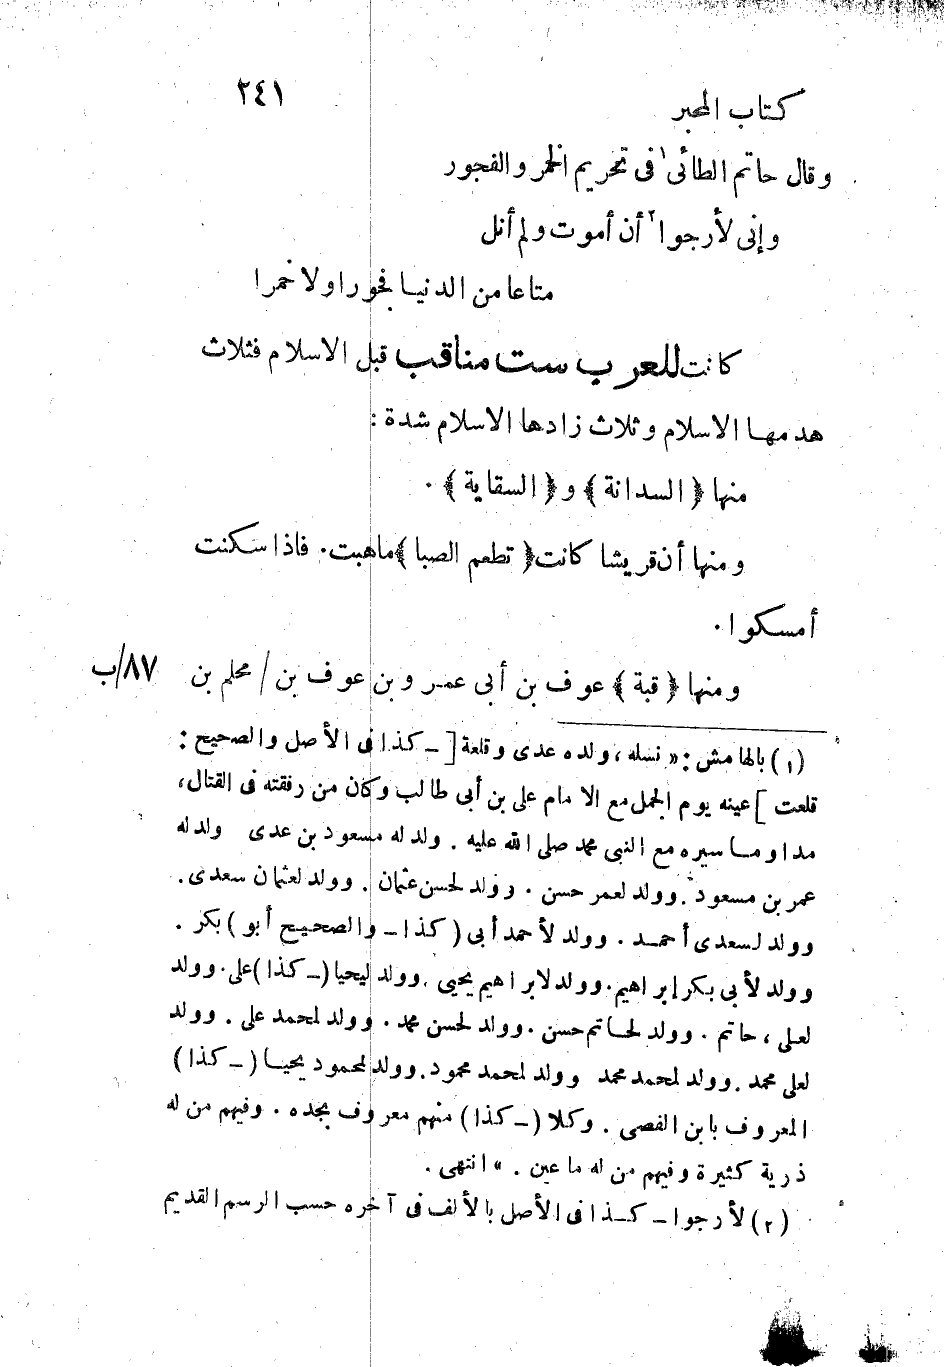 كتاب المحبر ٢٤١
وقال حاتم الطائى١ فى تحريم الخمر والفجور
وإنى لأرجوا٢ أن أموت ولم أنل
متاعا من الدنيا فجورا ولا خمرا
كانت للعرب ست مناقب قبل الاسلام فثلاث
هدمها الاسلام وثلاث زادها الاسلام شدة :
منها ﴿ السدانة ﴾ و﴿ السقاية ﴾ .
ومنها أن قريشا كانت ﴿ تطعم الصبا ﴾ ماهبت . فاذا سكنت
أمسكوا .
ومنها ﴿ قبة ﴾ عوف بن أبى عمرو بن عوف بن / محلم بن ٨٧/ب
(١) بالهامش : « نسله ، ولده عدى وقلعة [ ـ كذا فى الأصل والصحيح :
قلعت ] عينه يوم الجمل مع الامام على بن أبى طالب وكان من رفقته فى القتال ،
مداوما سيره مع النبى محمد صلى الله عليه . ولد له مسعود بن عدى ولد له
عمر بن مسعود . وولد لعمر حسن . وولد لحسن عثمان . وولد لعثمان سعدى .
وولد لسعدى أحمد . وولد لأحمد أبى ( كذا ـ والصحيح أبو ) بكر .
وولد لأبى بكر إبراهيم . وولد لابراهيم يحيى . وولد ليحيا ( ـ كذا ) على . وولد
لعلى ، حاتم . وولد لحاتم حسن . وولد لحسن محمد . وولد لمحمد على . وولد
لعلى محمد . وولد لمحمد محمد وولد لمحمد محمود . وولد لمحمود يحيا ( ـ كذا )
المعروف بابن الفصى . وكلا ( ـ كذا ) منهم معروف بجده . وفيهم من له
ذرية كثيرة وفيهم من له ما عين . » انتهى .
(٢) لأرجوا ـ كذا فى الأصل بالألف فى آخره حسب الرسم القديم